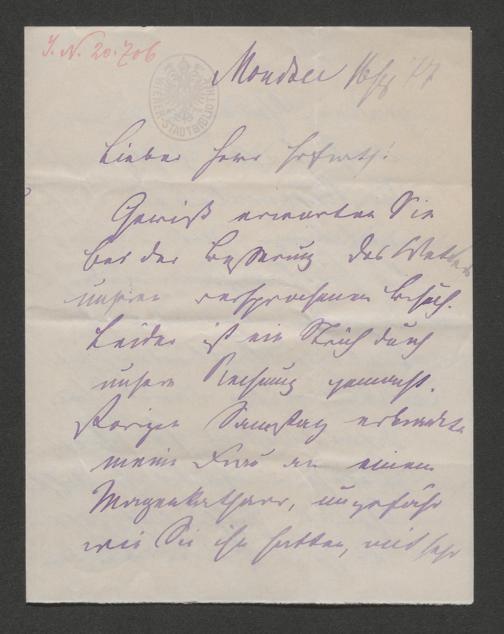 I. N. 20.706
WIENER-STADTBIBLIOTHEK
Mondsee 16/9
Lieber Herr Hofrath!
Gewiß erwarten Sie
bei der Besserung des Wetters
unseren versprochenen Besuch.
Leider ist ein Strich durch
unsere Rechnung gemacht.
Vorigen Samstag erkrankte
meine Frau an einem
Magenkatharr, ungefähr
wie Sie ihn hatten, mit sehr